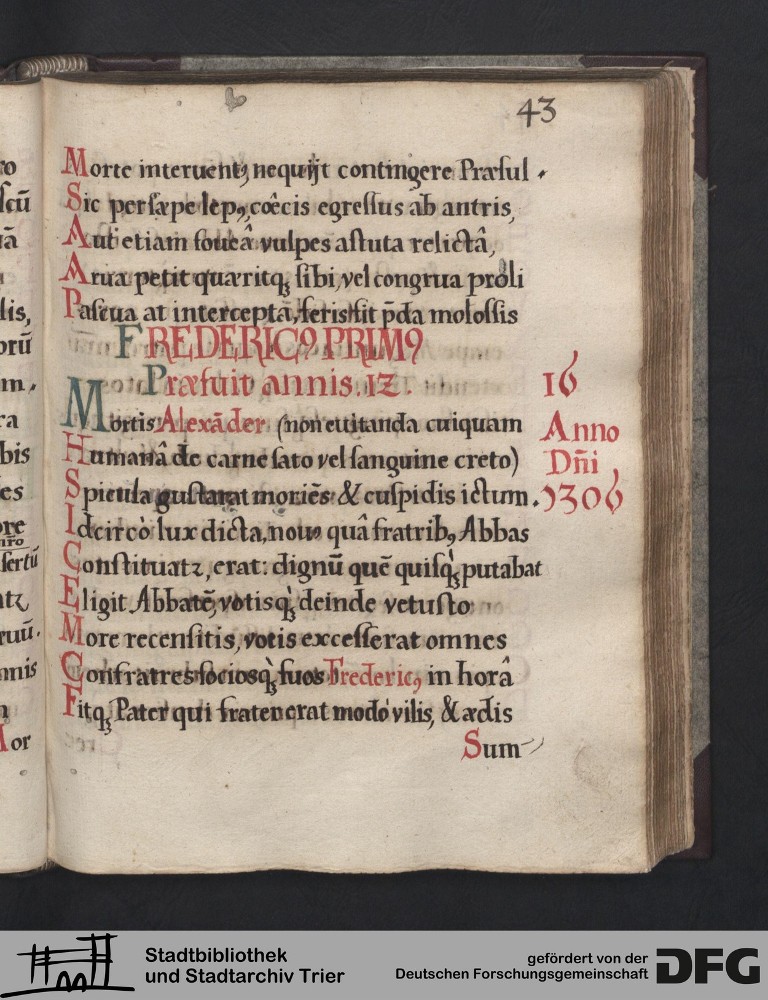 43
Morte interuentꝫ nequijt contingere Præsul.
Sic persæpe lepꝯ, cœ̂cis egressus ab antris,
Aut etiam foueâ vulpes astuta relictâ,
Arua petit quæritqꝫ sibi, vel congrua proli
Pascua at interceptâ, feris fit p̄da molossis
FREDERICꝯ PRIMꝯ
Præfuit annis. 12.
16
Anno
Dn̄i
1306
Mortis Alexāder (non euitanda cuiquam
Humanâ de carne sato vel sanguine creto)
Spicula gustarat moriēs & cuspidis ictum.
Idcircò lux dicta, nouꝯ quâ fratribꝯ Abbas
Constituatꝛ, erat: dignū quē quisqꝫ putabat
Eligit Abbatē, votisqꝫ deinde vetusto
More recensitis, votis excesserat omnes
Confratres sociosqꝫ suos Fredericꝯ in horâ
Fitqꝫ Pater qui frater erat modò vilis, & ædis
Sum
ro
scū
uā
lis,
orū
m.
ra
bis
es
ore
sertū
atꝛ
ruū.
mnis
Mor
Stadtbibliothek
und Stadtarchiv Trier
gefördert von der
Deutschen Forschungsgemeinschaft
DFG